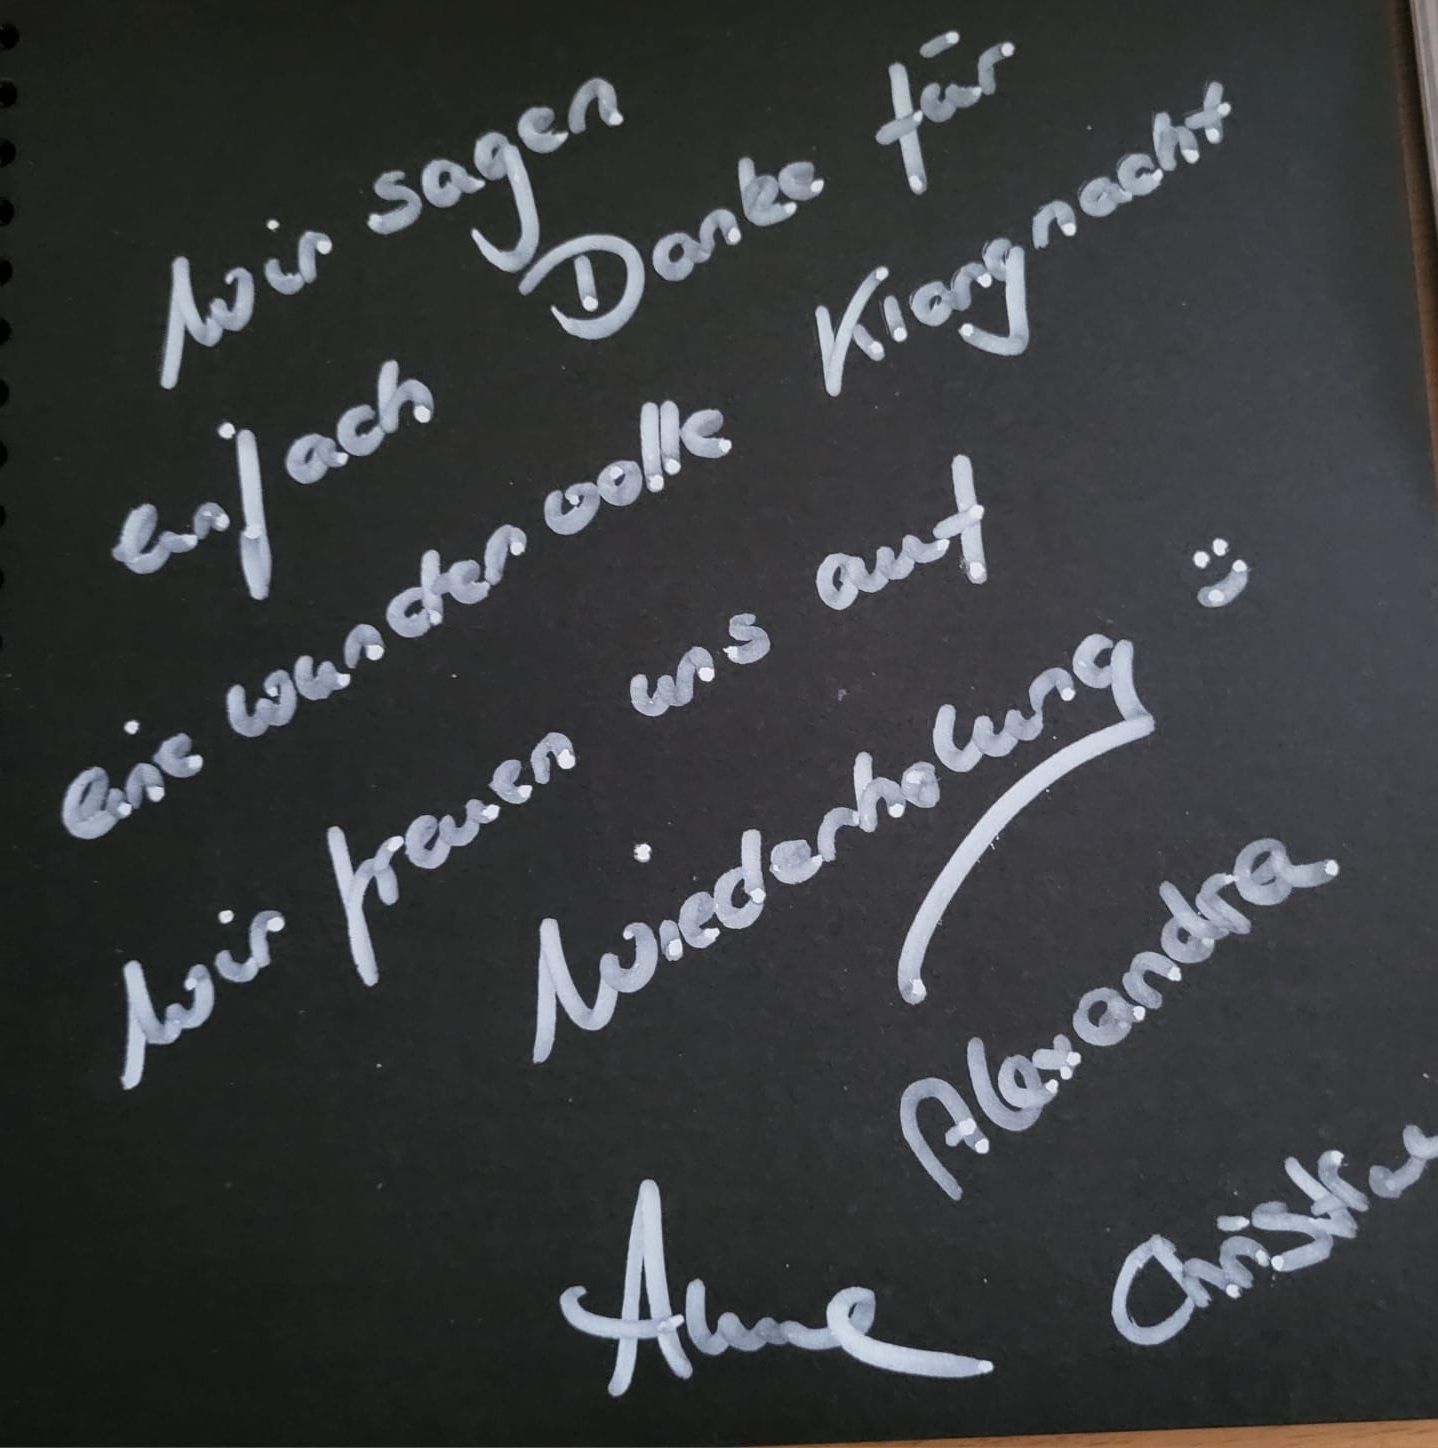 Wir sagen
einfach Danke für
eine wundervolle Klangnacht
Wir freuen uns auf
Wiederholung :)
Alexandra